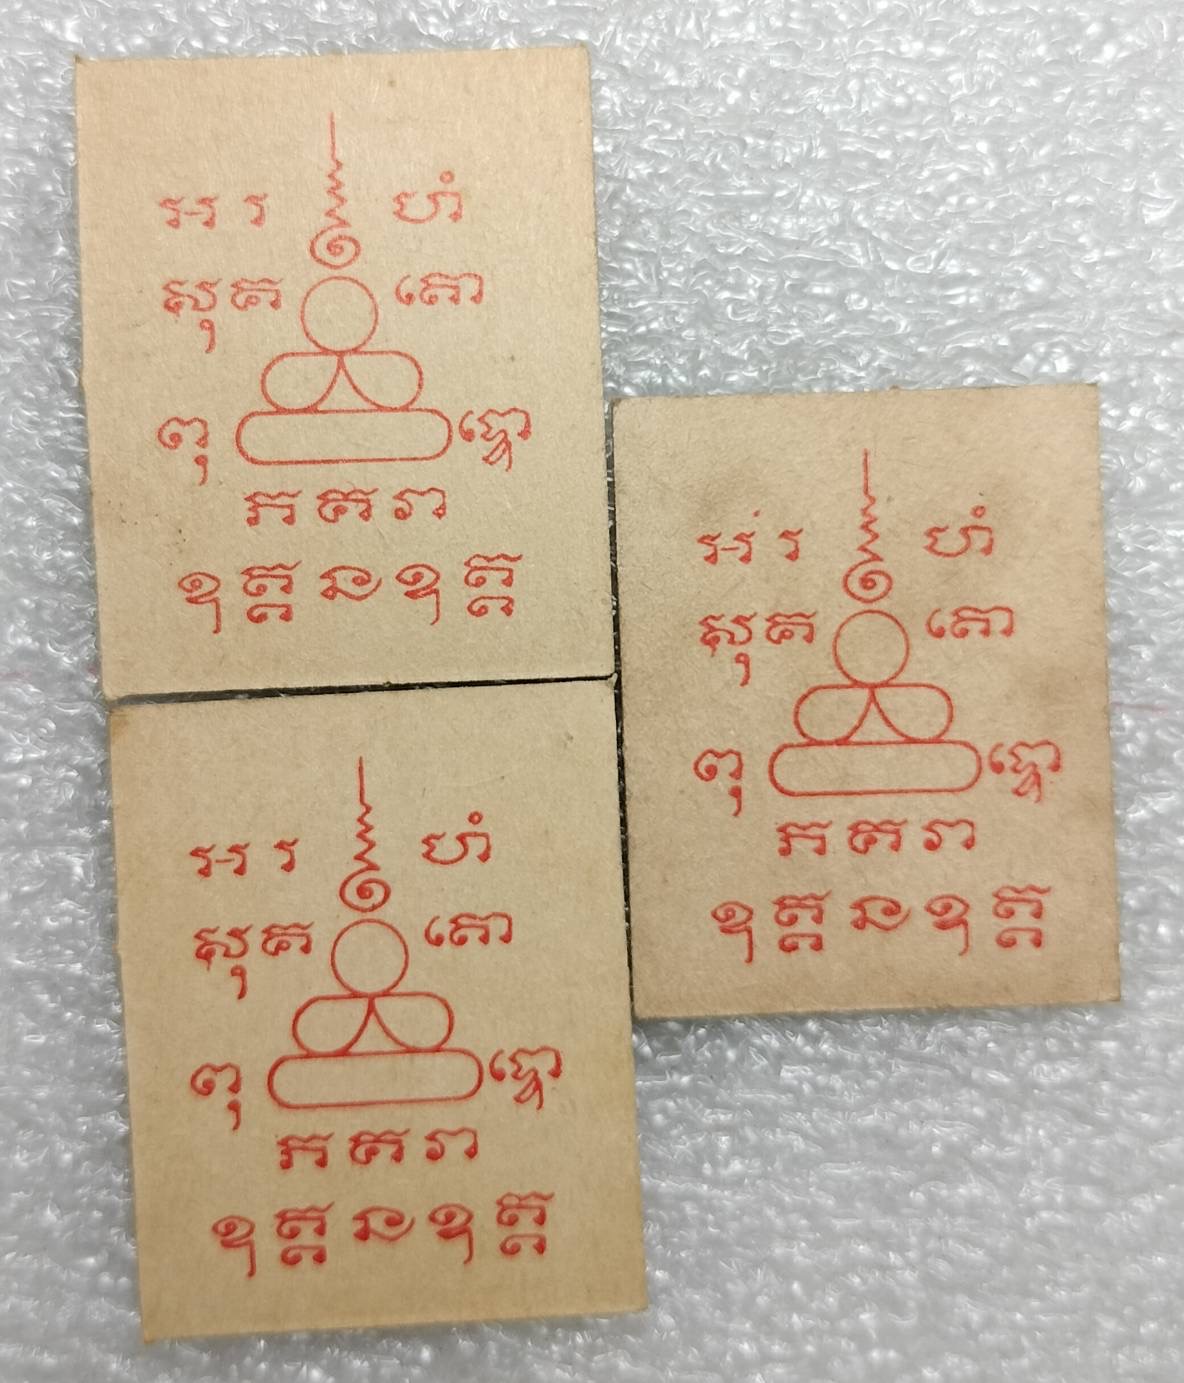 អ រ ហំ
សុគ តោ
ពុ ទ្ធោ
ភ គ វា
ឧ ត្ត ន ឧ ត្ត
អ រ ហំ
សុគ តោ
ពុ ទ្ធោ
ភ គ វា
ឧ ត្ត ន ឧ ត្ត
អ រ ហំ
សុគ តោ
ពុ ទ្ធោ
ភ គ វា
ឧ ត្ត ន ឧ ត្ត